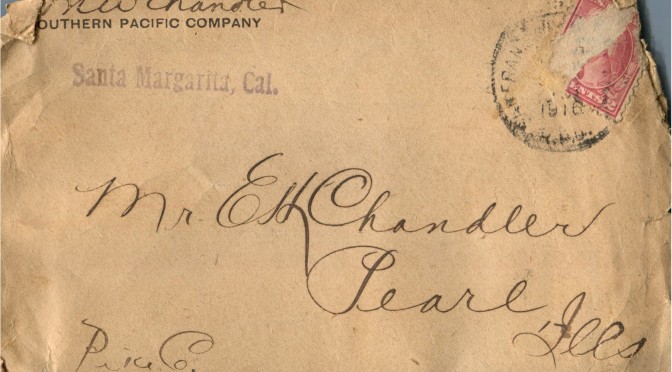 Chandler
OUTHERN PACIFIC COMPANY
Santa Margarita, Cal.
1916
R.P.O.
Mr. E H Chandler
Pearl
Ills
Pike Co.